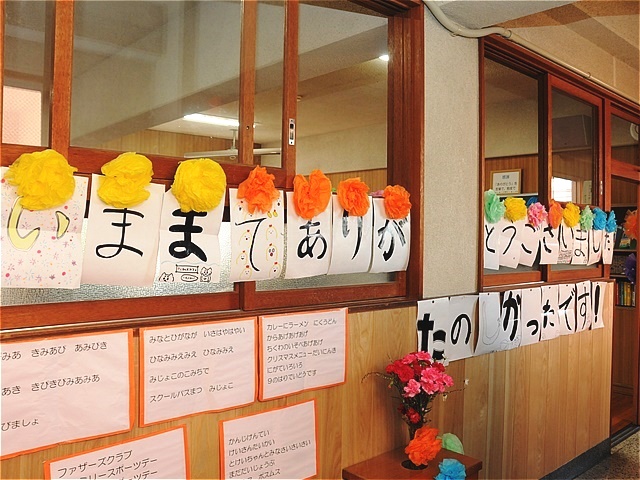 いままでありが
とうございました
たのしかったです!
みあ きみあび あみびき
あき きびきびみあみあ
びましょ
みなとひがなが いさはやはやい
ひなみみえみえ ひなみみえ
みじょこのこみちで
スクールバスまつ みじょこ
カレーにラーメン にくうどん
からあげあげあげ
ちくわのいそべあげあげ
クリスマスメニューだいにんき
にがていろいろ
9のはらいどうです
ファザーズクラブ
ミリースポーツデー
かんじけんてい
けいさんたいかい
とけいちゃんとみなさいさいさい
まだだいじょうぶ